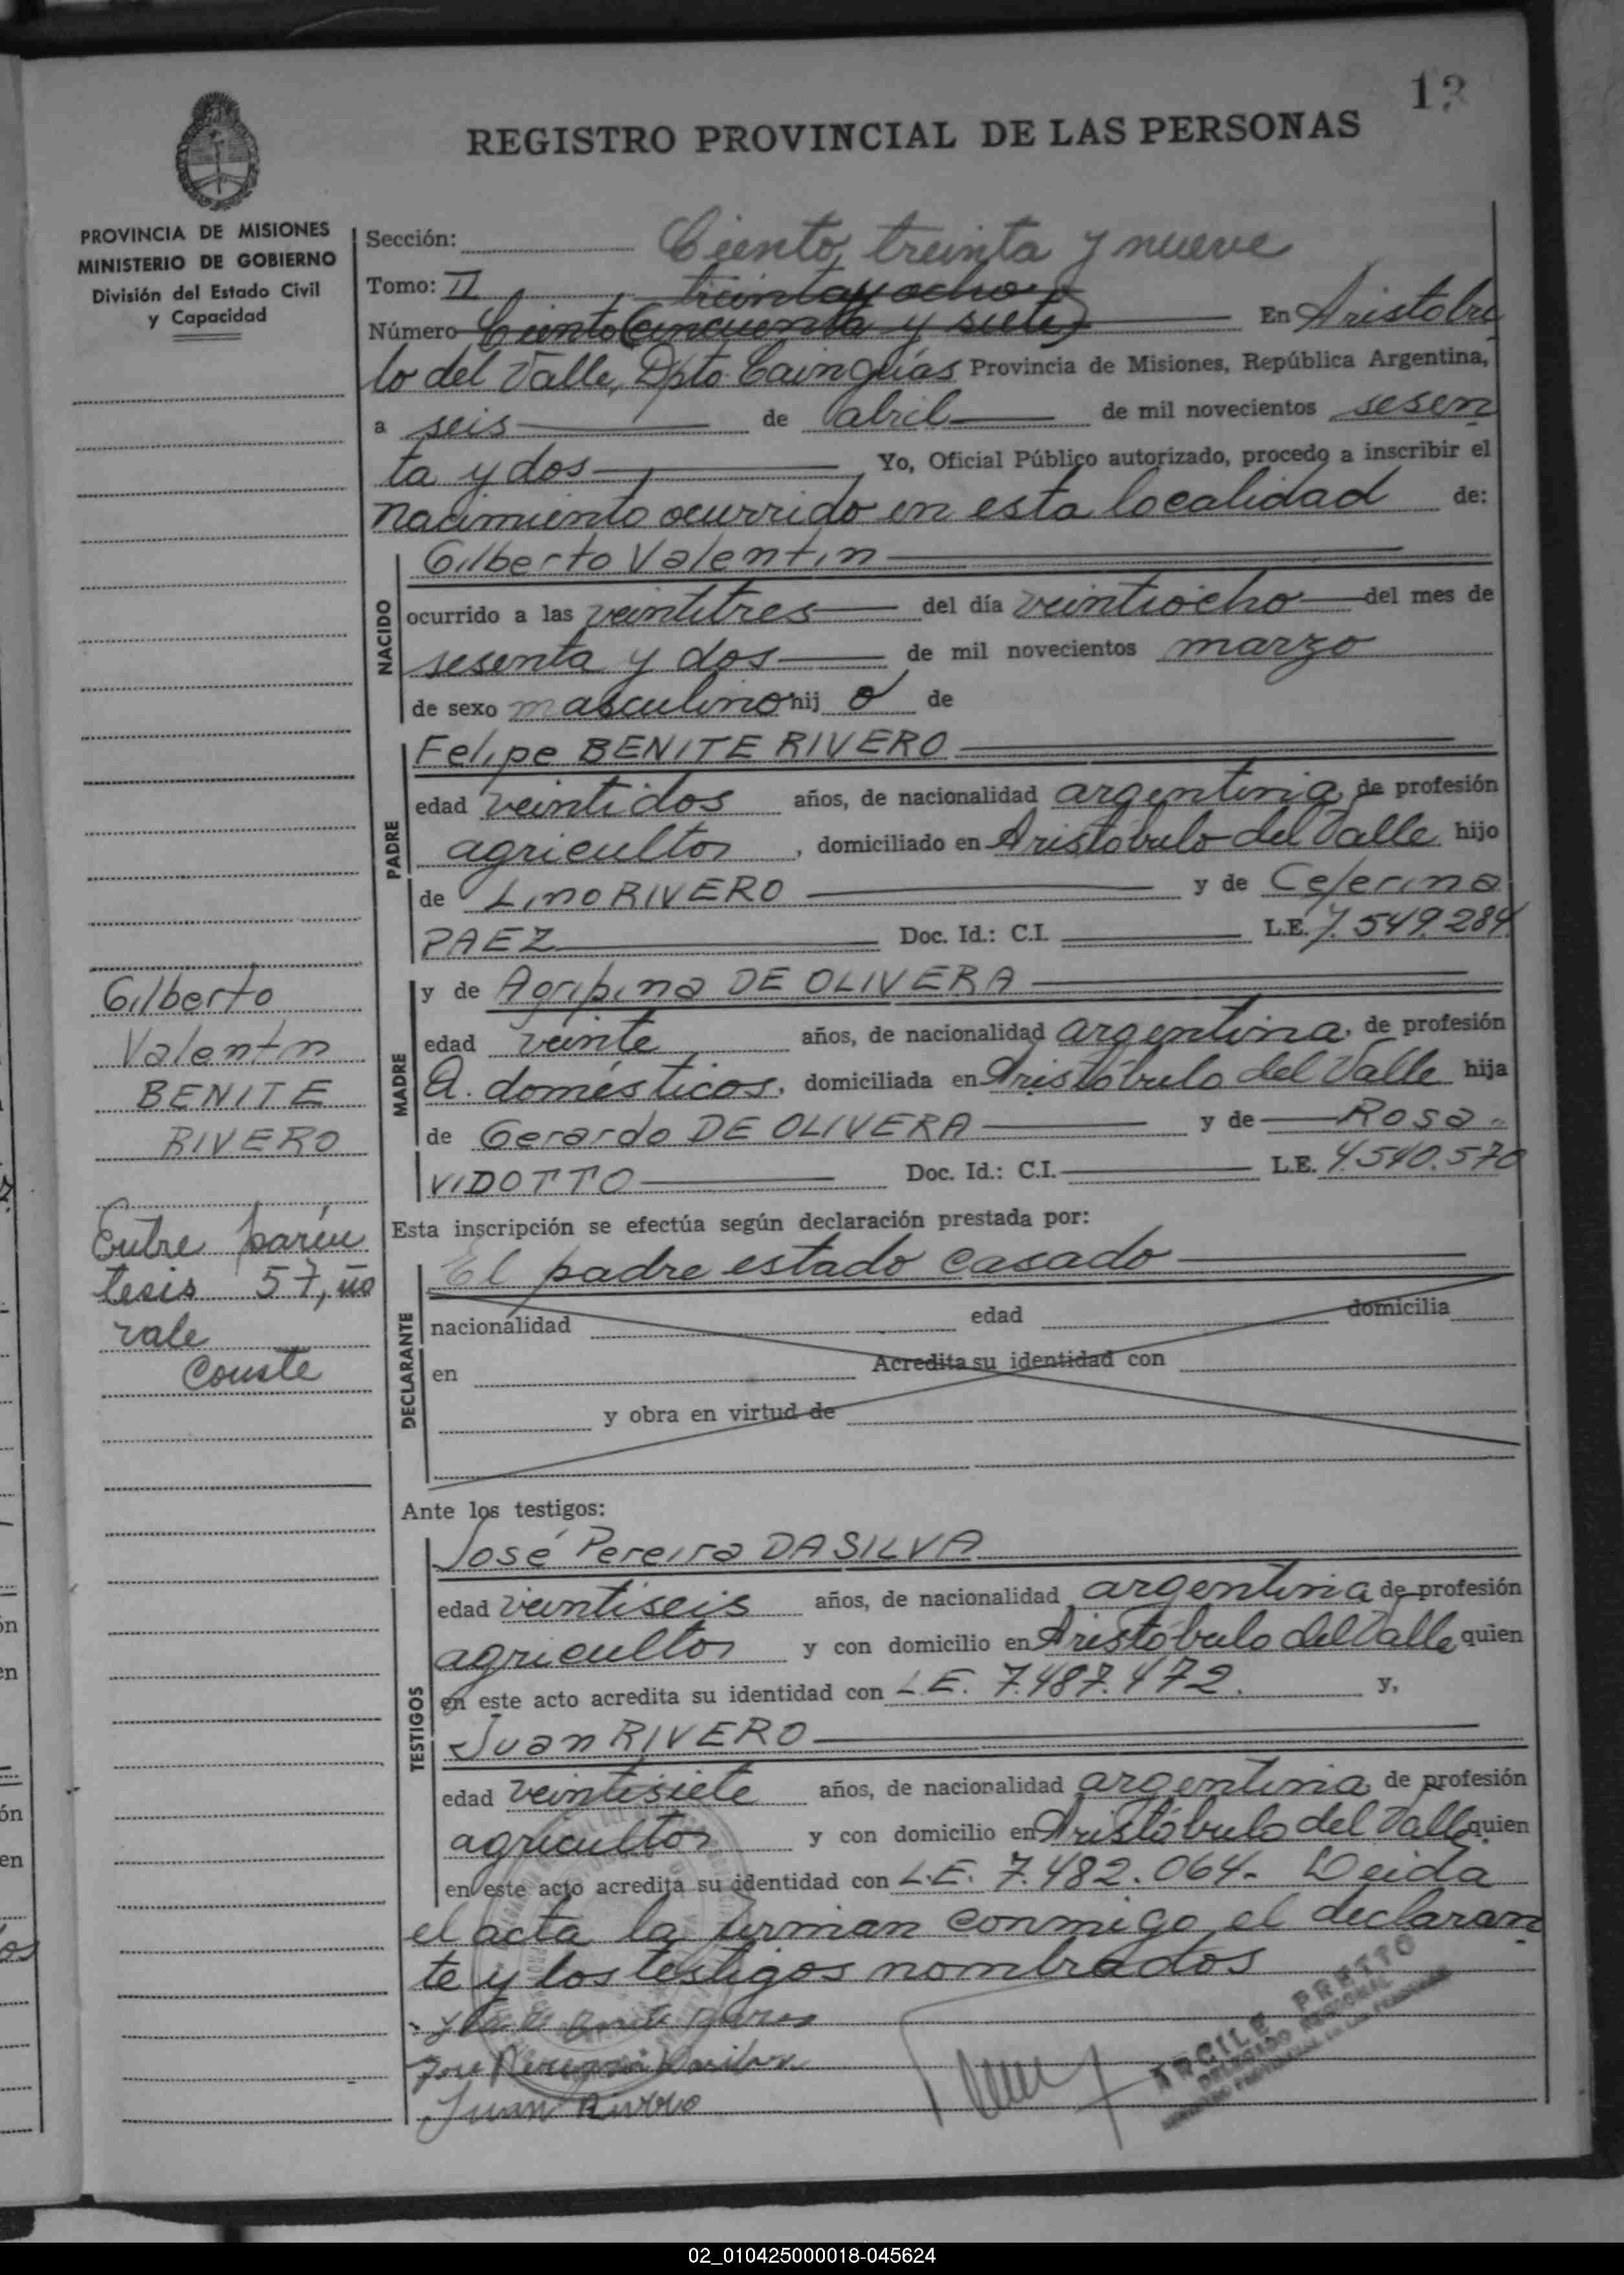 12
REGISTRO PROVINCIAL DE LAS PERSONAS
PROVINCIA DE MISIONES
MINISTERIO DE GOBIERNO
División del Estado Civil
y Capacidad
Sección: Ciento treinta y nueve
Tomo: II treinta y ocho
Número Ciento (cincuenta y siete) En Aristóbu
lo del Valle, Dpto. Cainguás Provincia de Misiones, República Argentina,
a seis de abril de mil novecientos sesen
ta y dos Yo, Oficial Público autorizado, procedo a inscribir el
nacimiento ocurrido en esta localidad de:
NACIDO
Gilberto Valentín
ocurrido a las veintitres del día veintiocho del mes de
sesenta y dos de mil novecientos marzo
de sexo masculino hij o de
PADRE
Felipe BENITE RIVERO
edad veintidos años, de nacionalidad argentina, de profesión
agricultor, domiciliado en Aristóbulo del Valle hijo
de Lino RIVERO y de Ceferina
PAEZ Doc. Id.: C.I. L.E. 7.549.284
MADRE
y de Agripina DE OLIVERA
edad veinte años, de nacionalidad argentina, de profesión
Q. domésticos, domiciliada en Aristóbulo del Valle hija
de Gerardo DE OLIVERA y de Rosa
VIDOTTO Doc. Id.: C.I. L.E. 4.540.570
Gilberto
Valentín
BENITE
RIVERO
Entre parén
tesis 57, no
vale
Conste
Esta inscripción se efectúa según declaración prestada por:
DECLARANTE
El padre estado casado
nacionalidad edad domicilia
en Acredita su identidad con
y obra en virtud de
Ante los testigos:
TESTIGOS
José Pereira DA SILVA
edad veintiseis años, de nacionalidad argentina de profesión
agricultor y con domicilio en Aristóbulo del Valle quien
en este acto acredita su identidad con L.E. 7.487.472. y,
Juan RIVERO
edad veintisiete años, de nacionalidad argentina, de profesión
agricultor y con domicilio en Aristóbulo del Valle quien
en este acto acredita su identidad con L.E. 7.482.064.- Leida
el acta la firman conmigo el declaran
te y los testigos nombrados
Juan Rivero
ARGILE PRETTO
DELEGADO REGIONAL
02_010425000018-045624